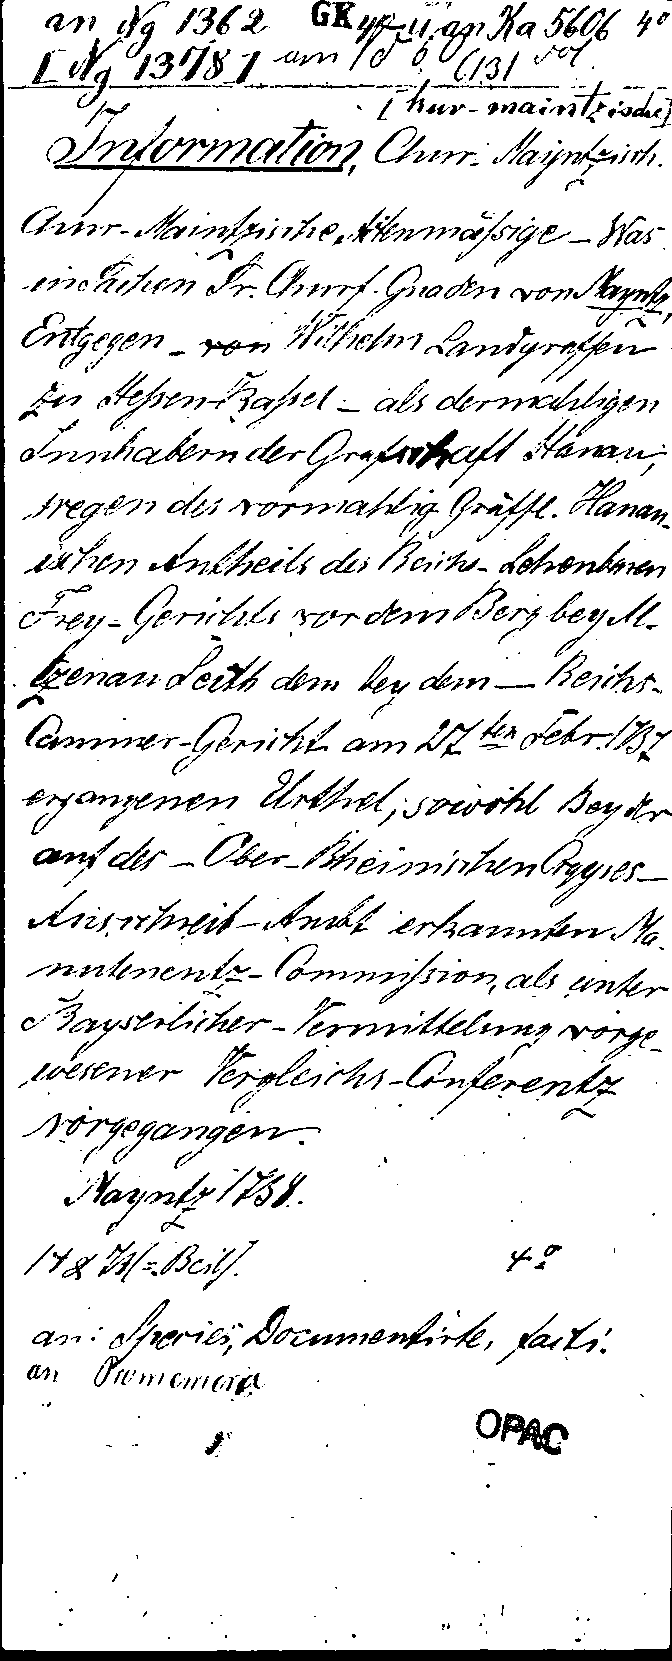 an Ng 1362 GK 4º u. an Ka 5606 4º
[Ng 1378]
[Chur-maintzische]
Information, Chur-Mayntzisch.
Chur-Maintzische, Aktenmäßige – Was
in Sachen Sr. Churf. Gnaden von Mayntz,
Entgegen – von Wilhelm Landgraffen
zu Hessen-Kassel – als dermahligen
Innhabern der Grafschaft Hanau,
wegen des vormahlig Gräffl. Hanau-
ischen Antheils des Reichs-Lehenbaren
Frey-Gerichts vor dem Berg bey Al-
tzenau Seith dem bey dem – Reichs-
Cammer-Gericht am 27ten Febr. 1737
ergangenen Urthel, sowohl Bey der
auf des – Ober-Rheinischen Crayses –
Ausschreib-Ambt erkannten Ma-
nutenentz-Commission, als unter
Kayserlicher-Vermittelung vorge-
wesener Vergleichs-Conferentz
vorgegangen.
Mayntz 1738.
4º
an: Species, Documentirte, facti.
an Promemoria
OPAC